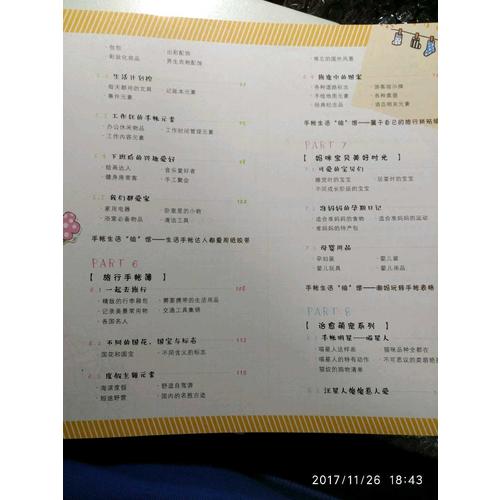 ·包包 ·出彩配饰
·彩妆化妆品 ·男生衣测配饰
生活计划控
·每天都用的文具 ·记账本元素
·事件元素
工作狂的手帐元素
·办公休闲物品 ·工作时间管理元素
·工作内容元素
下班后的兴趣爱好
·绘画达人 ·音乐爱好者
·健身房常客 ·手工聚会
我们都爱家
·家用电器 ·卧室里的小物
·浴室必备物品 ·清洁工具
手帐生活“绘”馆——生活手帐达人都爱用纸胶带
PART 6
【 旅行手帐簿 】
6.1 一起去旅行 108
·精致的行李箱包 ·需要携带的生活用品
·记录美景常用物 ·交通工具集锦
·各国名人
6.2 不同的国花、国宝与标志 112
·国花和国宝 ·不同含义的标志
6.3 度假主题元素 115
·海滨度假 ·舒适自驾游
·短途野营 ·国内的名胜古迹
·难忘的国外风景
6.4 旅途中的图案
·各种道路标志 ·旅客指示牌
·手绘地图元素 ·各种票据
·经典纪念品 ·酒店相关元素
手帐生活“绘”馆——属于自己的旅行拼贴
PART 7
【 妈咪宝贝美好时光 】
7.1 可爱的宝贝们
·睡觉时的宝宝 ·玩耍时的宝宝
·不同成长阶段的宝宝
7.2 准妈妈的孕期日记
·适合准妈妈的食物 ·适合准妈妈的运动
·准妈妈的待产包
7.3 母婴用品
·孕妇装 ·婴儿装
·婴儿玩具 ·婴儿用品
手帐生活“绘”馆——潮妈玩转手帐表格
PART 8
【 治愈萌宠系列 】
8.1 手帐明星——喵星人
·喵星人这样画 ·猫咪品种全都在
·喵星人的特有动作 ·不可思议的卖萌
·猫奴的购物清单
8.2 汪星人憨憨惹人爱
2017/11/26 18:43